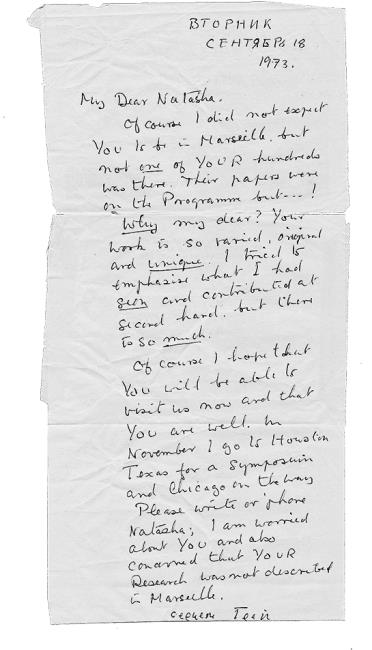 ВТОРНИК
СЕНТЯБРЬ 18
1973.
My Dear Natasha.
Of course I did not expect
You to be in Marseille. but
not one of YOUR hundreds
was there. Their papers were
on the Programme but---!
Why my dear? Your
work is so varied, original
and unique. I tried to
emphasize what I had
seen and contributed at
second hand. but there
is so much.
Of course I hope that
You will be able to
visit us now and that
You are well. In
November I go to Houston
Texas for a Symposium
and Chicago on the way
Please write or 'phone
Natasha; I am worried
about YOU and also
concerned that YOUR
Research was not described
in Marseille.